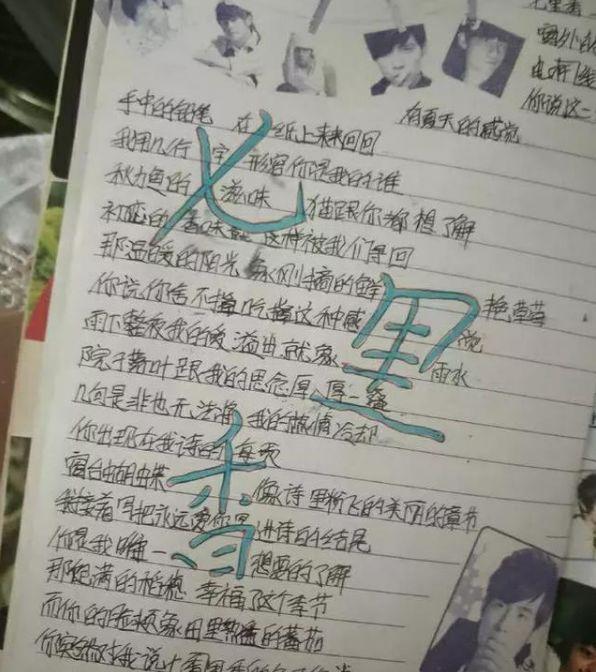 七里香
窗外的
电线
你说这一
有夏天的感觉
手中的铅笔 在纸上来来回回
我用几行字 形容你是我的谁
秋刀鱼的 滋味 猫跟你都想了解
初恋的香味 这样被我们 回
那温暖的阳光 象刚摘的鲜艳草莓
你说你舍不得吃掉这种感觉
雨下整夜我的爱溢出就象雨水
院子落叶跟我的思念厚厚一叠
几句是非也无法将我的热情冷却
你出现在我诗的每页
窗台蝴蝶 像诗里纷飞的美丽的章节
我接着写把永远爱你写进诗的结尾
你是我唯一想要的了解
那饱满的稻穗 幸福了这个季节
而你的脸颊象田里熟透的蕃茄
你突然对我说七里香的名字